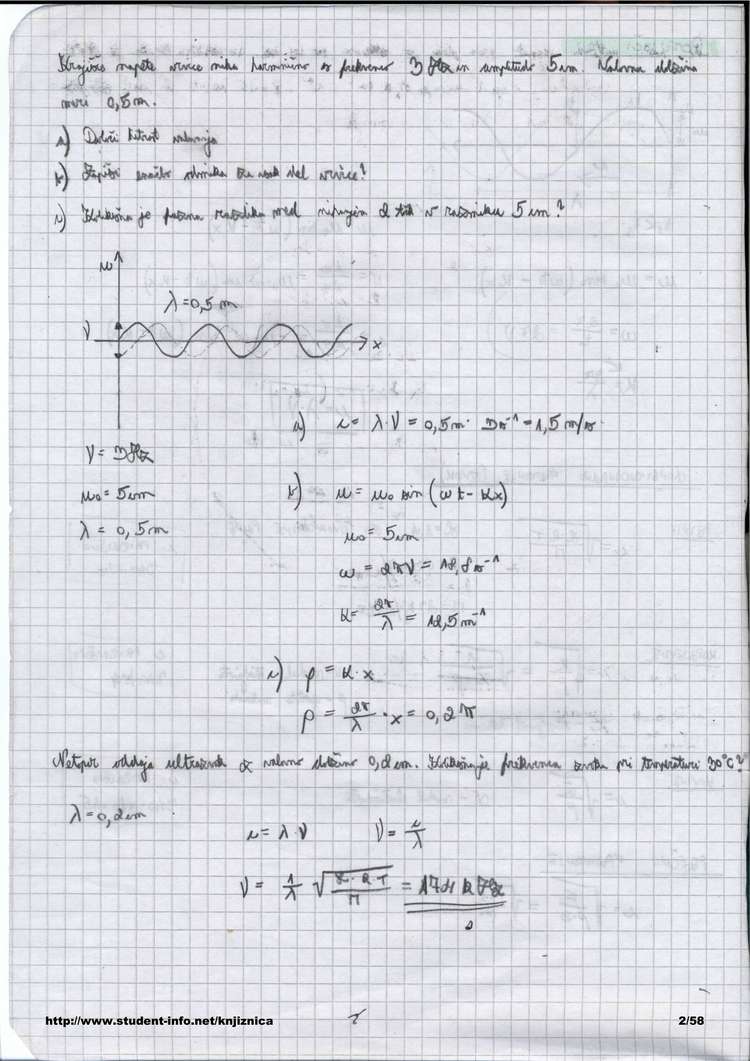 Krajišče napete vrvice niha harmonično s frekvenco 3 Hz in amplitudo 5 cm. Valovna dolžina
meri 0,5 m.
a) Določi hitrost valovanja
b) Zapiši enačbo odmika za vsak del vrvice!
c) Kolikšna je fazna razlika med nihanjem 2 točk v razmiku 5 cm?
u
λ = 0,5 m
x
a) c = λ·ν = 0,5 m · 3 s⁻¹ = 1,5 m/s
ν = 3 Hz
b) u = u₀ sin (ωt - kx)
u₀ = 5 cm
u₀ = 5 cm
λ = 0,5 m
ω = 2πν = 18,8 s⁻¹
k = 2π/λ = 12,5 m⁻¹
c) ρ = k·x
ρ = 2π/λ · x = 0,2 π
Netopir oddaja ultrazvok z valovno dolžino 0,2 cm. Kolikšna je frekvenca zvoka pri temperaturi 30°C?
λ = 0,2 cm
c = λ·ν ν = c/λ
ν = 1/λ √(χ·R·T/M) = 174 k Hz
http://www.student-info.net/knjiznica 2/58